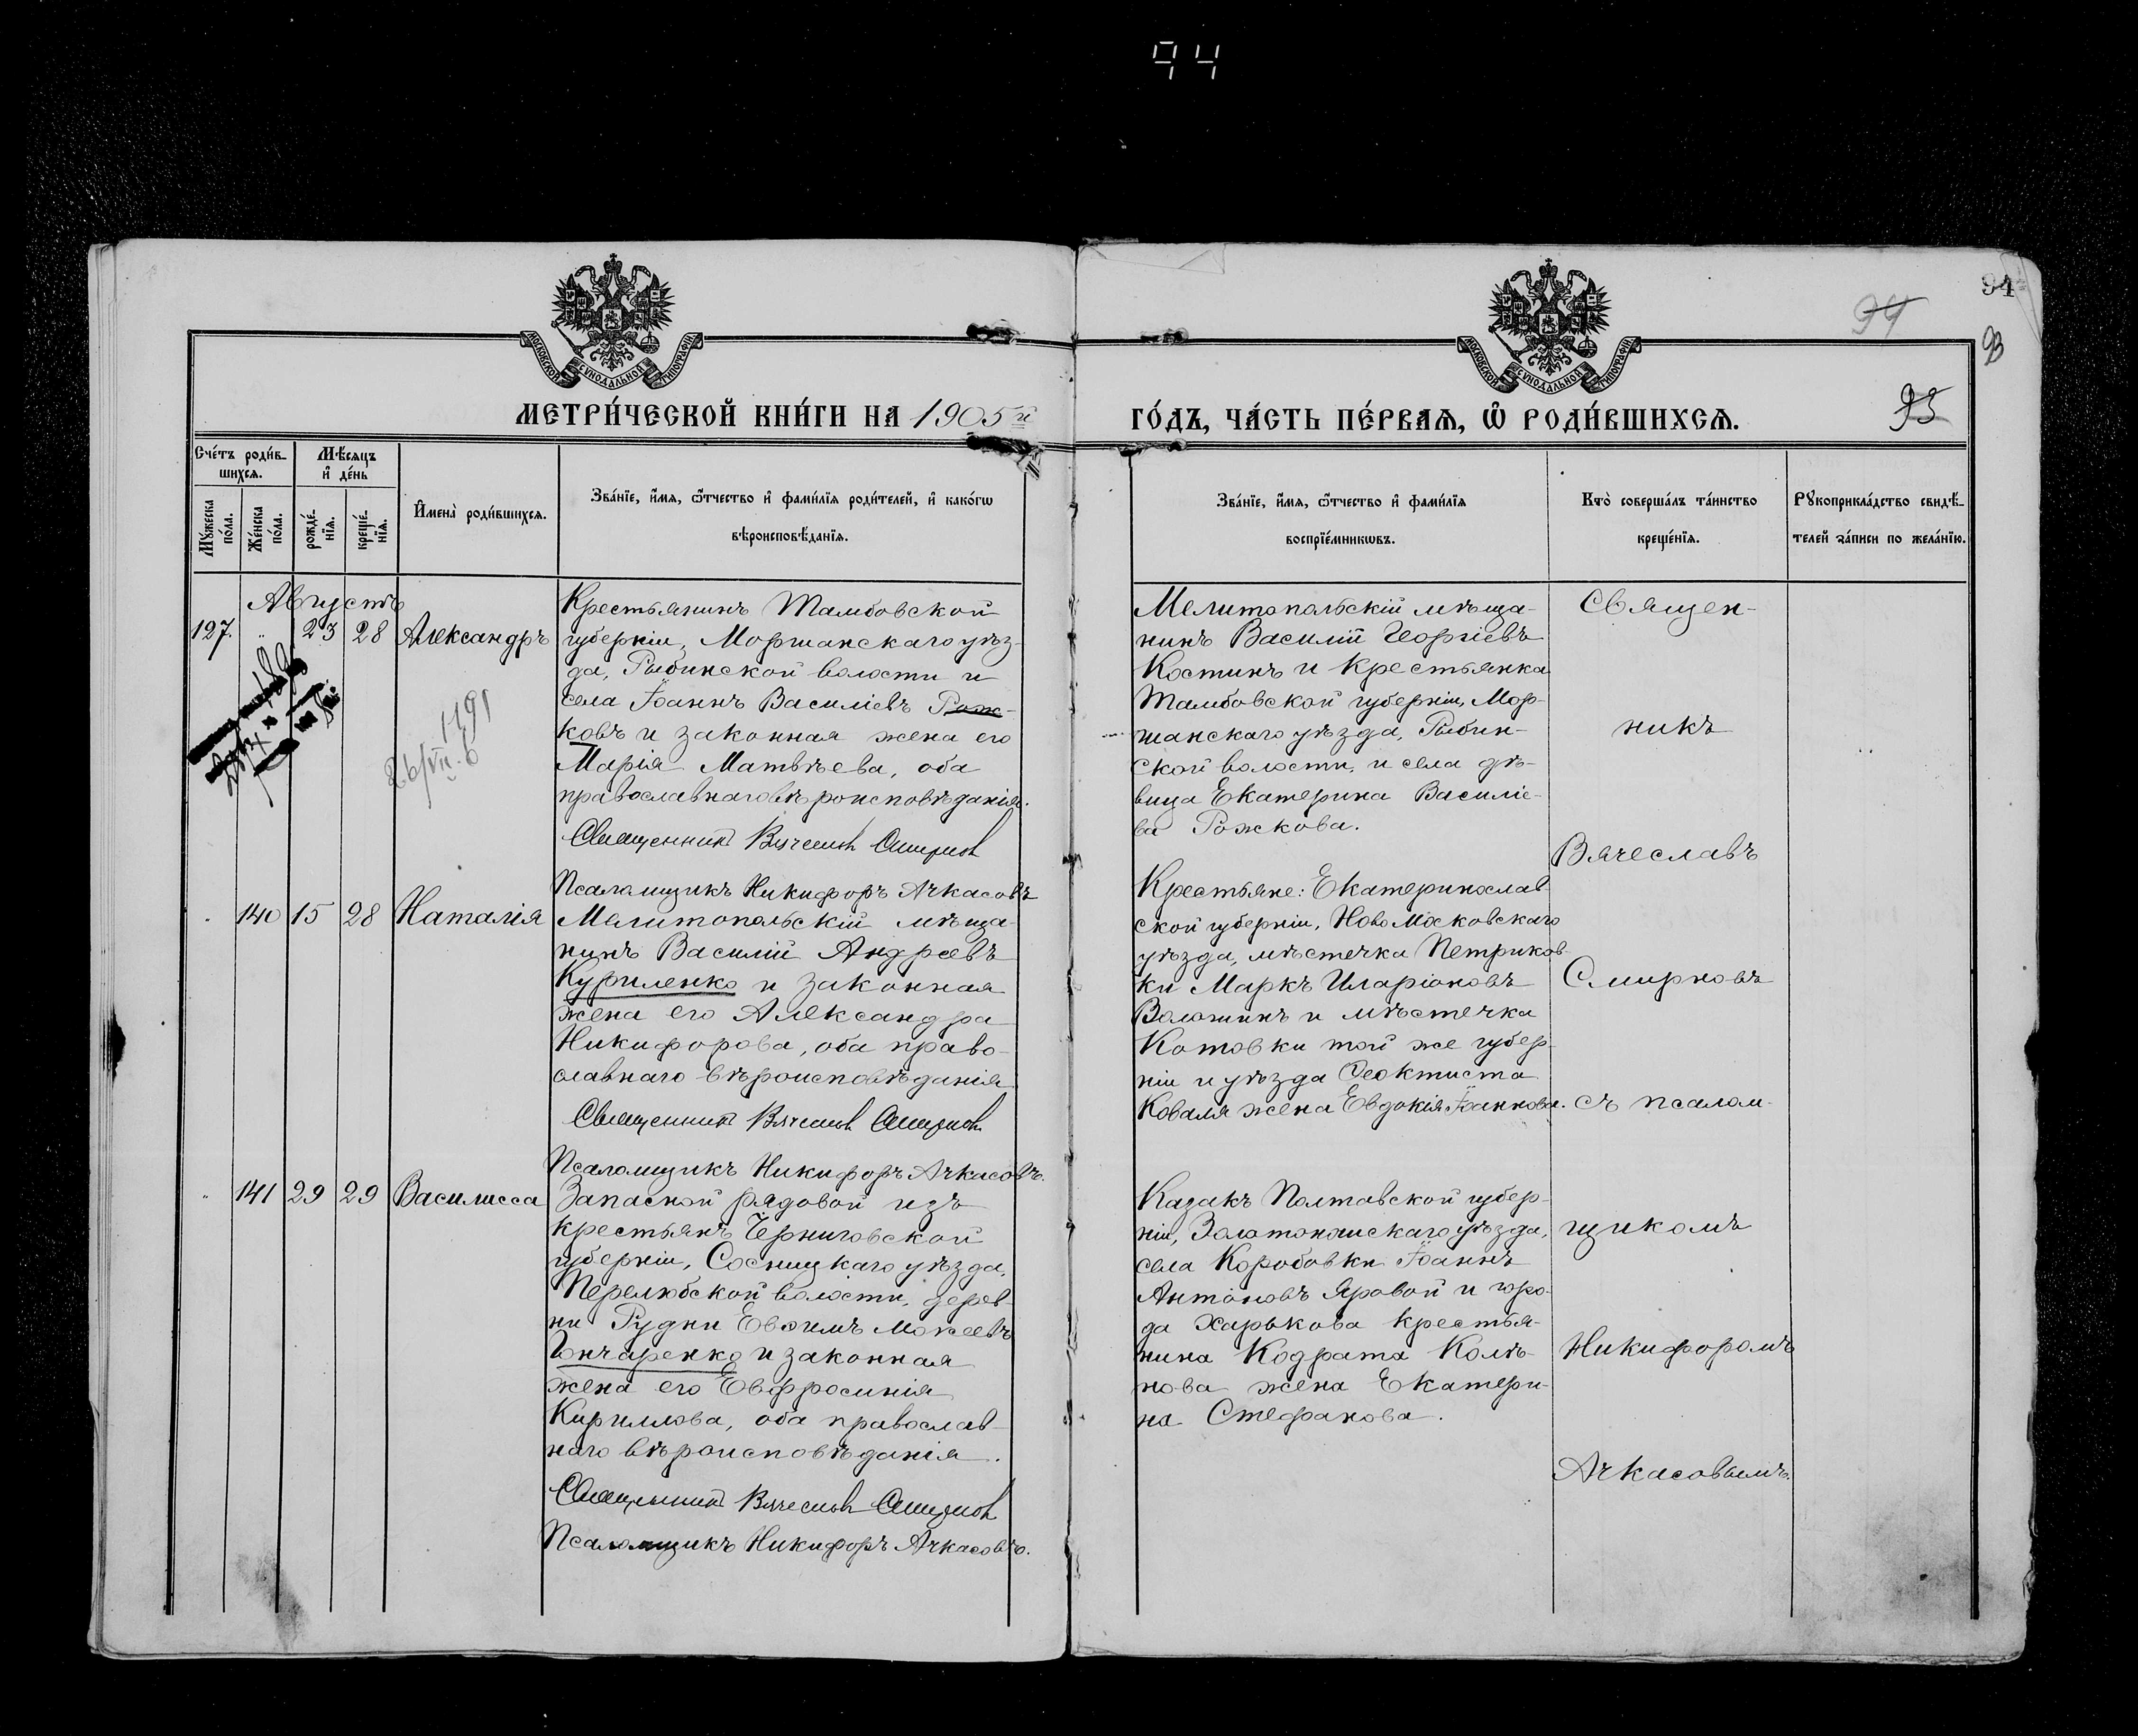 94
94
94
93
95
МОСКОВСКОЙ СУНОДАЛЬНОЙ ТИПОГРАФІИ
МОСКОВСКОЙ СУНОДАЛЬНОЙ ТИПОГРАФІИ
МЕТРИ́ЧЕСКОЙ КНИ́ГИ НА 1905 й
ГО́ДЪ, ЧА́СТЬ ПЕ́РВАЯ, Ѽ РОДИ́ВШИХСЯ.
Сче́тъ роди́в-
шихся.
Мꙋ́жеска по́ла.
Же́нска по́ла.
Мѣ́сяцъ
и҆ де́нь
рожде́-
нїя.
креще́-
нїя.
И҆мена̀ роди́вшихся.
Зва́нїе, и҆́мя, ѻ҆́тчество и҆ фами́лїя роди́телей, и҆ како́гѡ
вѣроисповѣ́данїя.
Зва́нїе, и҆́мя, ѻ҆́тчество и҆ фами́лїя
воспрїе́мникѡвъ.
Кто̀ соверша́лъ та́инство
креще́нїя.
Рꙋкоприкла́дство свидѣ́-
телей за́писи по жела́нїю.
Августъ
127. " 23 28 Александръ
1191
Крестьянинъ Тамбовской
губерніи, Моршанскаго уѣз-
да, Рыбинской волости и
села Іоаннъ Василіевъ Рож-
ковъ и законная жена его
Марія Матвѣева, оба
православнаго вѣроисповѣданія.
Священникъ Вячеславъ Смирновъ
Псаломщикъ Никифоръ Ачкасовъ
Мелитопольскій мѣща-
нинъ Василій Георгіевъ
Костинъ и крестьянка
Тамбовской губерніи, Мор-
шанскаго уѣзда, Рыбин-
ской волости, и села дѣ-
вица Екатерина Василіе-
ва Рожкова.
140 15 28 Наталія
Мелитопольскій мѣща-
нинъ Василій Андреевъ
Куриленко и законная
жена его Александра
Никифорова, оба право-
славнаго вѣроисповѣданія
Священникъ Вячеславъ Смирновъ
Псаломщикъ Никифоръ Ачкасовъ.
Крестьяне: Екатеринослав-
ской губерніи, Новомосковскаго
уѣзда, мѣстечка Петриков-
ки Маркъ Иларіоновъ
Волошинъ и мѣстечка
Котовки той же губер-
ніи и уѣзда Феоктиста
Коваля жена Евдокія Іоаннова.
" 141 29 29 Василисса
Запасной рядовой изъ
крестьянъ Черниговской
губерніи, Сосницкаго уѣзда,
Перелюбской волости, дерев-
ни Рудни Евфимъ Мокеевъ
Гончаренко и законная
жена его Евфросинія
Кириллова, оба православ-
наго вѣроисповѣданія.
Священникъ Вячеславъ Смирновъ
Псаломщикъ Никифоръ Ачкасовъ.
Казакъ Полтавской губер-
ніи, Золотоношскаго уѣзда,
села Коробовки Іоаннъ
Антоновъ Яровой и горо-
да Харькова крестья-
нина Кодрата Колѣ-
нова жена Екатери-
на Стефанова.
Священ-
никъ
Вячеславъ
Смирновъ
съ псалом-
щикомъ
Никифоромъ
Ачкасовымъ.